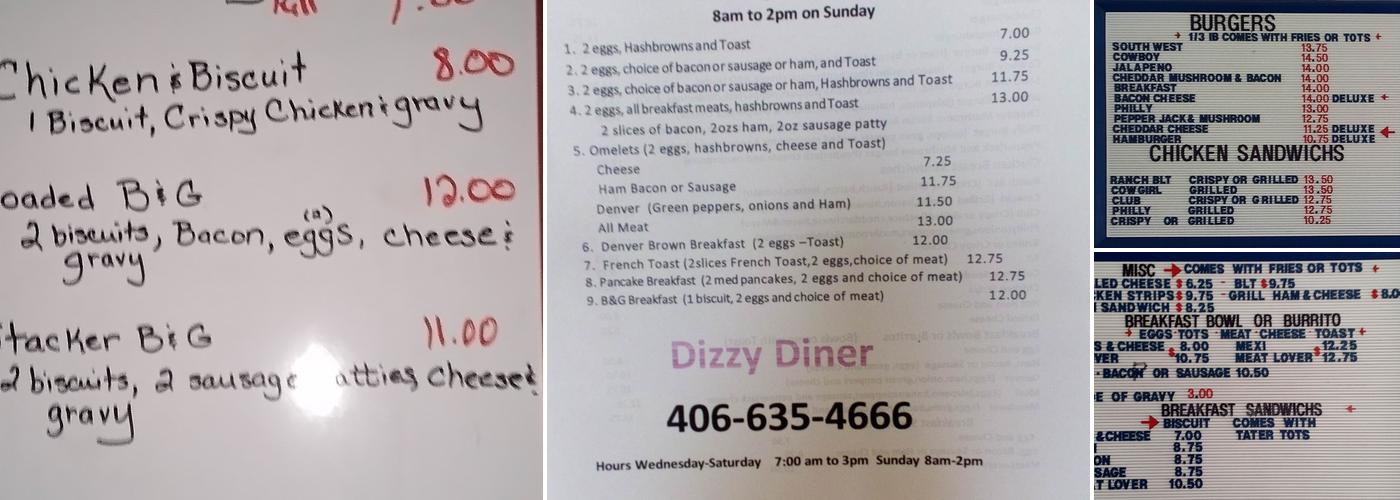 Chicken & Biscuit 8.00
1 Biscuit, Crispy Chicken & gravy
oaded B & G 12.00
(2)
2 biscuits, Bacon, eggs, cheese &
gravy
tacker B & G 11.00
2 biscuits, 2 sausage atties, cheese &
gravy
8am to 2pm on Sunday
1. 2 eggs, Hashbrowns and Toast 7.00
2. 2 eggs, choice of bacon or sausage or ham, and Toast 9.25
3. 2 eggs, choice of bacon or sausage or ham, Hashbrowns and Toast 11.75
4. 2 eggs, all breakfast meats, hashbrowns and Toast 13.00
2 slices of bacon, 2ozs ham, 2oz sausage patty
5. Omelets (2 eggs, hashbrowns, cheese and Toast)
Cheese 7.25
Ham Bacon or Sausage 11.75
Denver (Green peppers, onions and Ham) 11.50
All Meat 13.00
6. Denver Brown Breakfast (2 eggs –Toast) 12.00
7. French Toast (2slices French Toast,2 eggs,choice of meat) 12.75
8. Pancake Breakfast (2 med pancakes, 2 eggs and choice of meat) 12.75
9. B&G Breakfast (1 biscuit, 2 eggs and choice of meat) 12.00
Dizzy Diner
406-635-4666
Hours Wednesday-Saturday 7:00 am to 3pm Sunday 8am-2pm
BURGERS
1/3 lB COMES WITH FRIES OR TOTS
SOUTH WEST 13.75
COWBOY 14.50
JALAPENO 14.00
CHEDDAR MUSHROOM & BACON 14.00
BREAKFAST 14.00
BACON CHEESE 14.00 DELUXE
PHILLY 13.00
PEPPER JACK & MUSHROOM 12.75
CHEDDAR CHEESE 11.25 DELUXE
HAMBURGER 10.75 DELUXE
CHICKEN SANDWICHS
RANCH BLT CRISPY OR GRILLED 13.50
COWGIRL GRILLED 13.50
CLUB CRISPY OR GRILLED 12.75
PHILLY GRILLED 12.75
CRISPY OR GRILLED 10.25
MISC COMES WITH FRIES OR TOTS
LED CHEESE $ 6.25 - BLT $9.75
KEN STRIPS $ 9.75 - GRILL HAM & CHEESE $ 8.0
SANDWICH $ 8.25
BREAKFAST BOWL OR BURRITO
EGGS TOTS MEAT CHEESE TOAST
S & CHEESE 8.00 MEXI 12.25
VER 10.75 MEAT LOVER 12.75
- BACON OR SAUSAGE 10.50
E OF GRAVY 3.00
BREAKFAST SANDWICHS
BISCUIT COMES WITH
&CHEESE 7.00 TATER TOTS
8.75
ON 8.75
SAGE 8.75
T LOVER 10.50